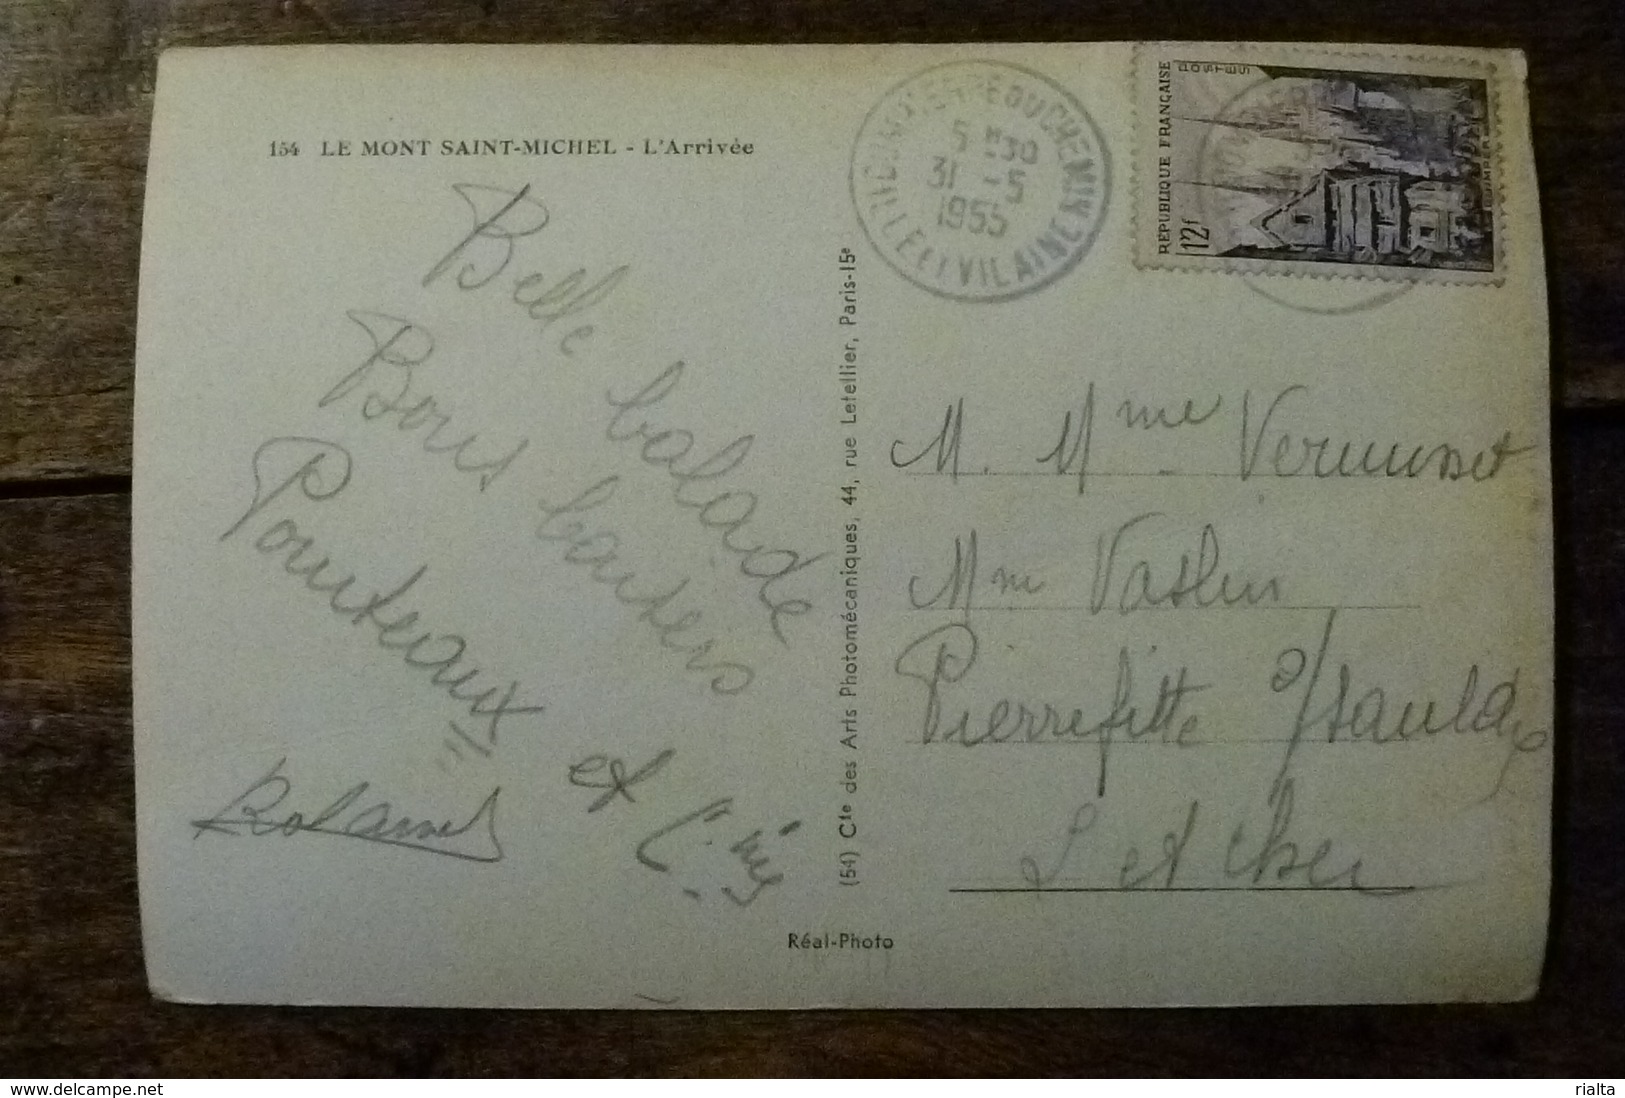 154 LE MONT SAINT-MICHEL - L'Arrivée
Belle balade
Bons baisers
Pouteaux
et
Roland
(54) Cie des Arts Photomécaniques, 44, rue Letellier, Paris-15e
Réal-Photo
5 H30
31 -5
1955
ILLE ET VILAINE
RÉPUBLIQUE FRANÇAISE
POSTES
12f
QUIMPER
M. Mme Vermusset
Mme Vaslin
Pierrefitte s/ sauldre
L et cher
www.delcampe.net
rialta